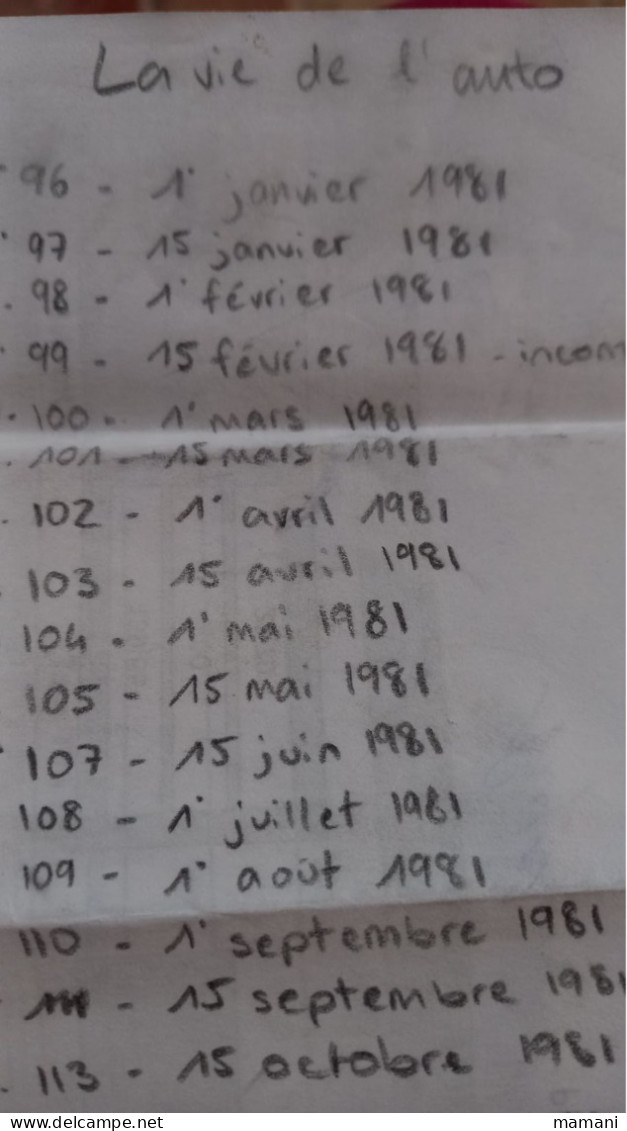 La vie de l'auto
96 - 1° janvier 1981
97 - 15 janvier 1981
98 - 1° février 1981
99 - 15 février 1981 - incom
100 - 1° mars 1981
101 - 15 mars 1981
102 - 1° avril 1981
103 - 15 avril 1981
104 - 1° mai 1981
105 - 15 mai 1981
107 - 15 juin 1981
108 - 1° juillet 1981
109 - 1° août 1981
110 - 1° septembre 1981
111 - 15 septembre 1981
113 - 15 octobre 1981
mamani